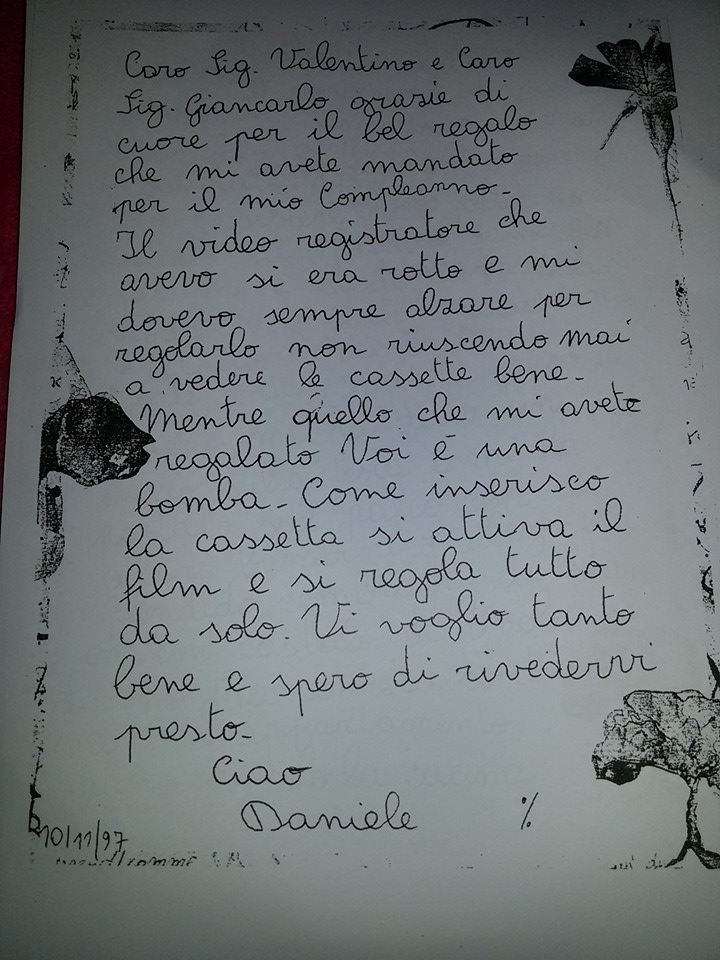 Caro Sig. Valentino e Caro
Sig. Giancarlo grazie di
cuore per il bel regalo
che mi avete mandato
per il mio Compleanno-
Il video registratore che
avevo si era rotto e mi
dovevo sempre alzare per
regolarlo non riuscendo mai
a vedere le cassette bene-
Mentre quello che mi avete
regalato Voi è una
bomba- Come inserisco
la cassetta si attiva il
film e si regola tutto
da solo. Vi voglio tanto
bene e spero di rivedervi
presto-
Ciao
Daniele %
10/11/97